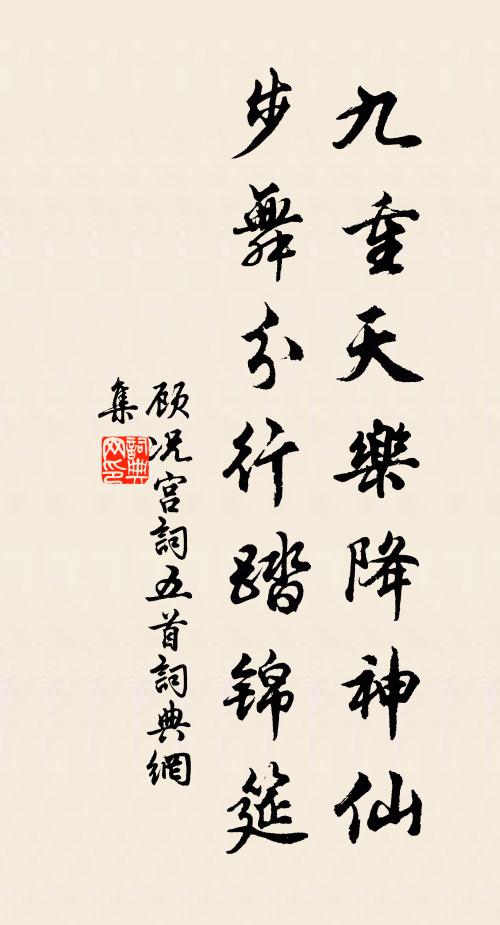 九重天樂降神仙
步舞分行踏锦筵
顾况宫詞五首詞典網
集
詞典
网印